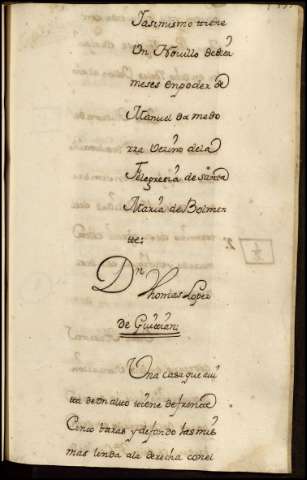 Iasimismo tiene
Vn Novillo de diez
meses en poder de
Manuel da medo
rra Vezino de la
Felegresia de santa
Maria de Boimen
te;
Dn Thomas Lopez
de Guitian;
Vna casa que avi
ta de Vn alto tiene de frente
Cinco baras y de fondo las mis
mas linda ala derecha con el